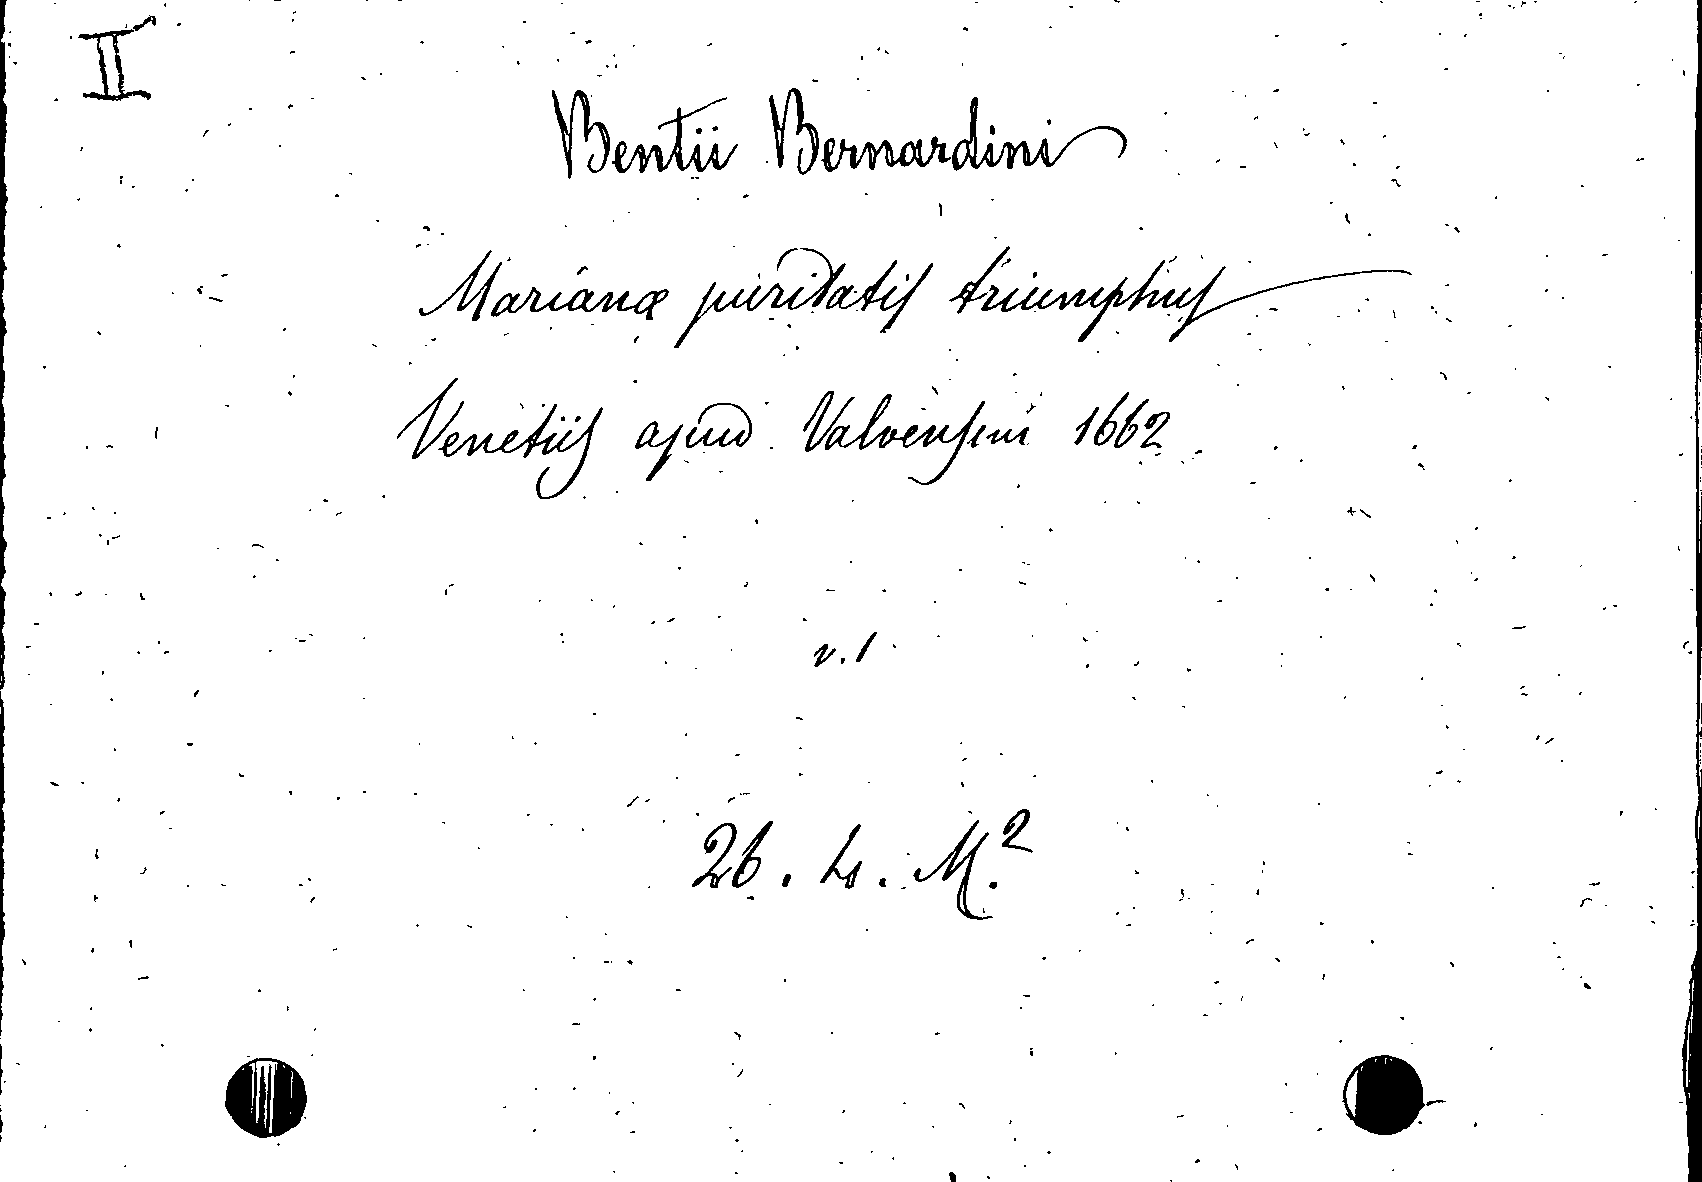 II
Bentii Bernardini
Marianæ puritatis triumphus
Venetiis apud Valvensem 1662
v. 1
26. L. M.²